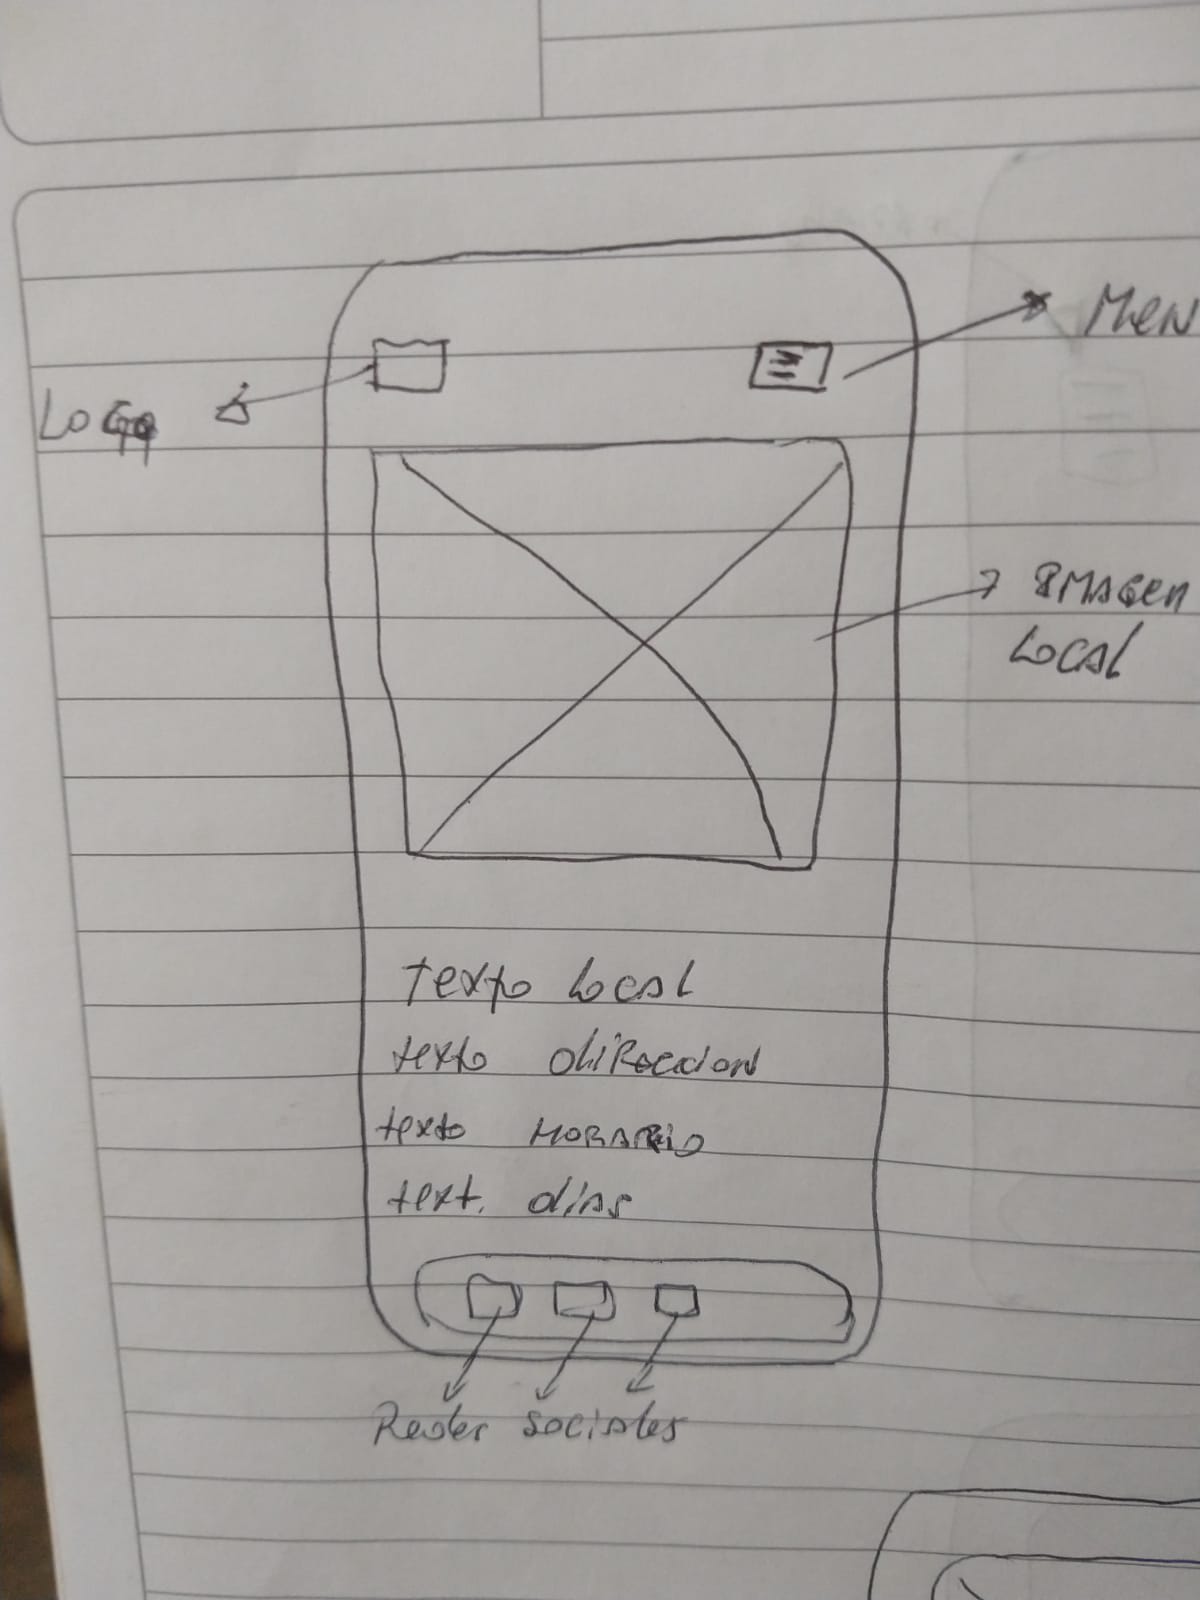 Men
Logo
Imagen
Local
Texto Local
texto direccion
texto Horario
text. dias
Redes sociales